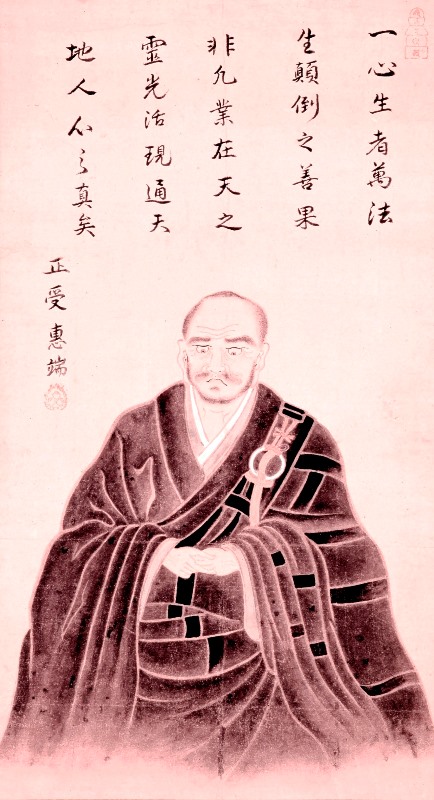 一心生者萬法
生顛倒之善果
非凡業在天之
靈光活現通天
地人心之真矣
正受惠端